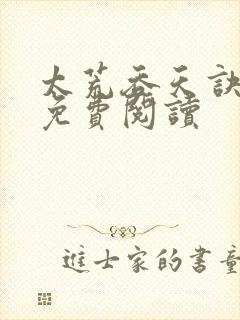 太荒吞天訣
免費閱讀
進士家的書童